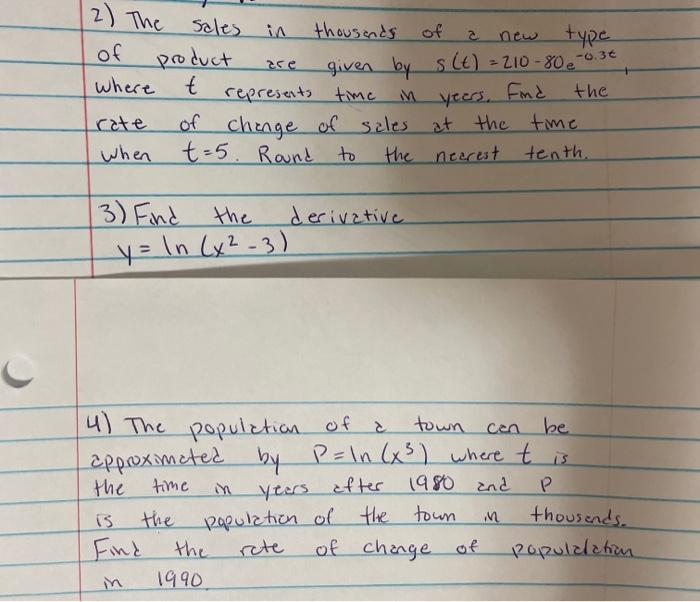 2) The sales in thousands of a new type
of product are given by s(t) = 210 - 80e^-0.3t,
where t represents time in years. Find the
rate of change of sales at the time
when t=5. Round to the nearest tenth.
3) Find the derivative
y = ln (x² - 3)
4) The population of a town can be
approximated by P = ln (x³) where t is
the time in years after 1980 and P
is the population of the town in thousands.
Find the rate of change of populdation
in 1990.